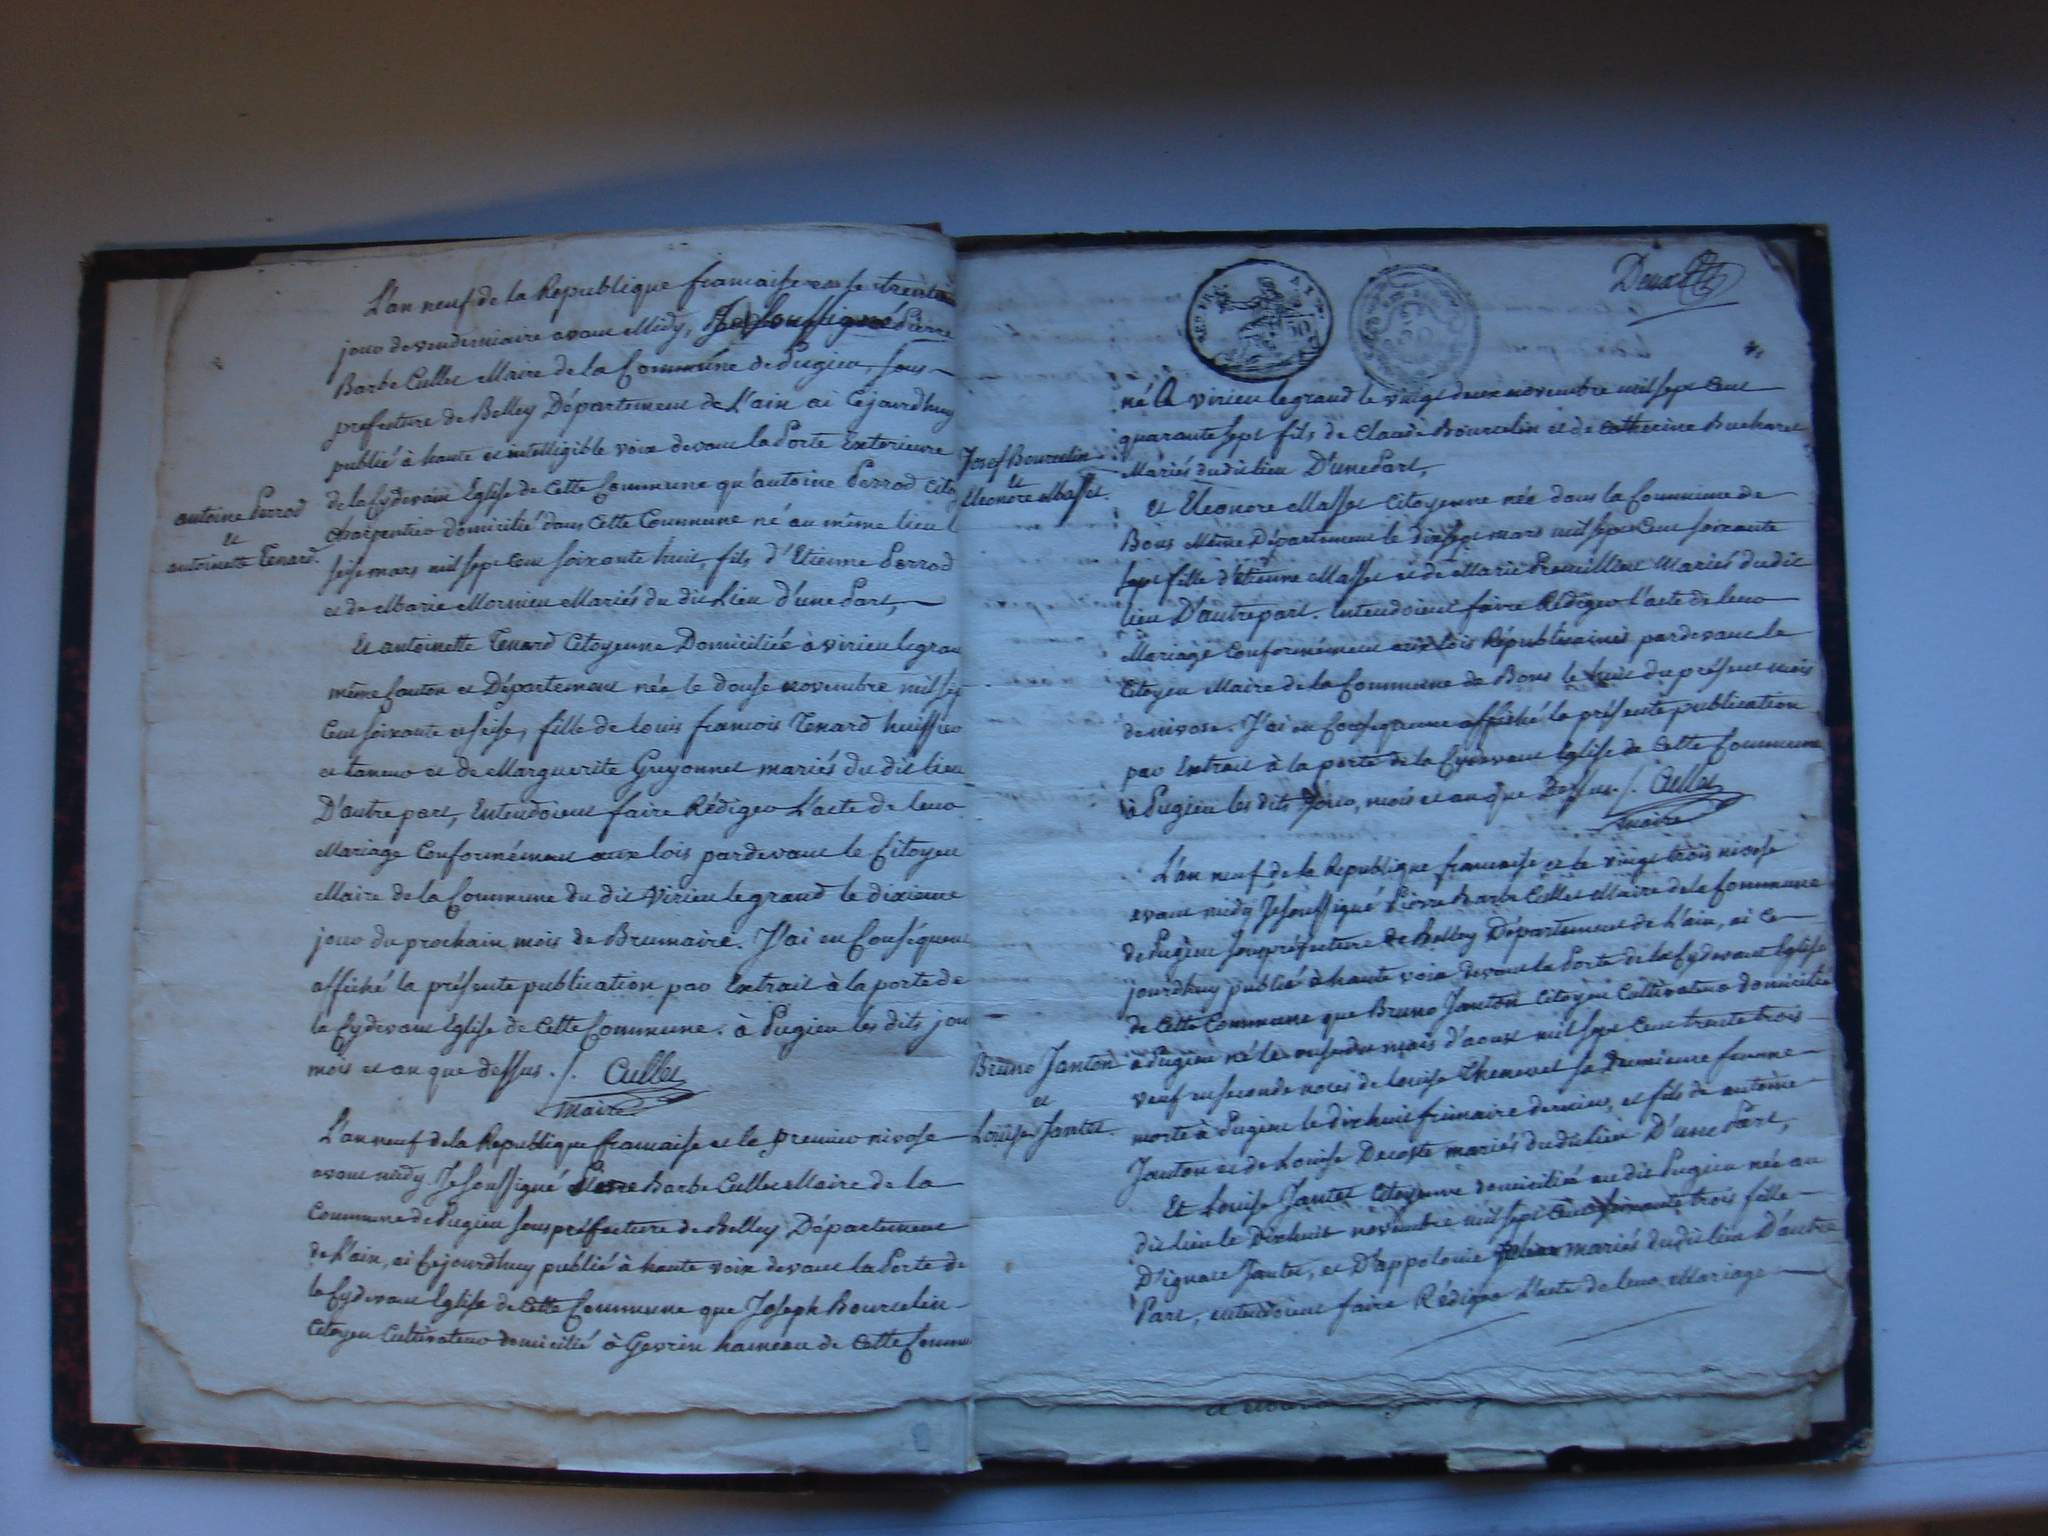 L'an neuf de la Republique francaise et le trentieme
jour de vendemiaire avant Midy, Je soussigné Pierre
Barbe Cullet Maire de la Commune de Pugieu, sous-
prefecture de Belley Département de L'ain ai Cejourdhuy
publié à haute et intelligible voix devant la Porte Exterieure
de la Cydevant Eglise de Cette Commune qu'antoine Perrod Cito
antoine Perrod
et
antoinette Tenard.
Charpentier domicilié dans Cette Commune né au même lieu l
seise mars mil sept Cent soixante huit, fils d'Etienne Perrod
et de Marie Mornieu Mariés du dit Lieu d'une Part,
Et antoinette Tenard Citoyenne Domiciliée à virieu legran
même Canton et Département née le douse novembre mil sep
Cent soixante et seise, fille de louis francois Tenard huissier
et taneur et de Marguerite Greyonnet mariés du dit lieu
D'autre part, Entendoient faire Rédiger L'acte de leur
Mariage Conformément aux lois pardevant le Citoyen
Maire de la Commune du dit Virieu legrand le dixieme
jour du prochain mois de Brumaire. J'ai en Conséquent
affiché la présente publication par Extrait à la porte de
la Cydevant Eglise de Cette Commune. à Pugieu les dits jou
mois et an que dessus. /. Cullet
maire
L'an neuf de la Republique francaise et le premier nivose
avant midy Je soussigné Pierre Barbe Cullet Maire de la
Commune de Pugieu sous préfecture de Belley Département
de L'ain, ai Cejourdhuy publié à haute voix devant la Porte de
la Cydevant Eglise de Cette Commune que Joseph Bourcelin
Citoyen Cultivateur domicilié à Gevrin hameau de Cette Commu
Deux
né A virieu legrand le vingt deux novembre mil sept Cent
quarante sept fils de Claude Bourcelin et de Catherine Bucharet
Josef Bourcelin
et
Eleonore Masset.
Mariés dudit lieu D'une Part,
Et Eleonore Masset Citoyenne née dans la Commune de
Bons Même Département le dixsept mars mil sept Cent soixante
sept fille d'etienne Masset et de Marie Mariés dudit
lieu D'autre part. Entendoient faire Rédiger l'acte de leur
Mariage Conformément aux lois Républicaines pardevant le
Citoyen Maire de la Commune de Bons le huit du présent mois
de nivose. J'ai en Consequence affiché la présente publication
par Extrait à la porte de la Cydevant Eglise de Cette Commune
à Pugieu les dits Jour, mois et an que Dessus. /. Cullet
maire
L'an neuf de la Republique francaise et le vingt trois nivose
avant midy Je soussigné Pierre Barbe Cullet Maire de la Commune
de Pugieu souspréfecture de Belley Département de L'ain, ai Ce
jourdhuy publié à haute voix devant la Porte de la Cydevant Eglise
de Cette Commune que Bruno Janton Citoyen Cultivateur domicilié
Bruno Janton
et
Louise Jantet.
à Pugieu né le onse du mois d'aoust mil sept Cent trente trois
veuf en seconde noces de Louise Thenevet sa derniere femme
morte à Pugieu le dix huit frimaire dernier, et fils de antoine
Janton et de Louise Decoste mariés dudit lieu D'une Part,
Et Louise Jantet Citoyenne domiciliée au dit Pugieu née au
dit lieu le Dixhuit novembre mil sept Cent soixante trois fille
D'ignace Jantet, et D'appolonie mariés dudit lieu D'autre
Part, entendoient faire Rédiger L'acte de leur Mariage